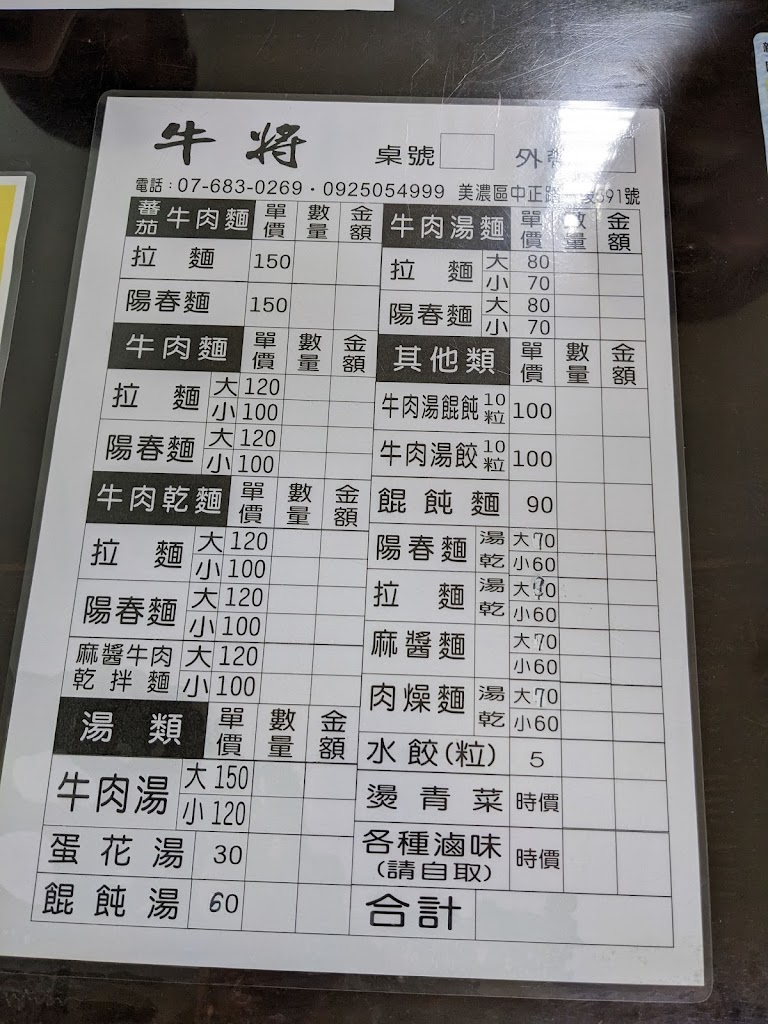 牛將 桌號 外
電話：07-683-0269・0925054999 美濃區中正路 591號
蕃茄牛肉麵 單價 數量 金額
拉麵 150
陽春麵 150
牛肉麵 單價 數量 金額
拉麵 大 120
小 100
陽春麵 大 120
小 100
牛肉乾麵 單價 數量 金額
拉麵 大 120
小 100
陽春麵 大 120
小 100
麻醬牛肉乾拌麵 大 120
小 100
湯類 單價 數量 金額
牛肉湯 大 150
小 120
蛋花湯 30
餛飩湯 60
牛肉湯麵 單價 數量 金額
拉麵 大 80
小 70
陽春麵 大 80
小 70
其他類 單價 數量 金額
牛肉湯餛飩 10粒 100
牛肉湯餃 10粒 100
餛飩麵 90
陽春麵 湯 大70
乾 小60
拉麵 湯 大70
乾 小60
麻醬麵 大70
小60
肉燥麵 湯 大70
乾 小60
水餃(粒) 5
燙青菜 時價
各種滷味 時價
(請自取)
合計